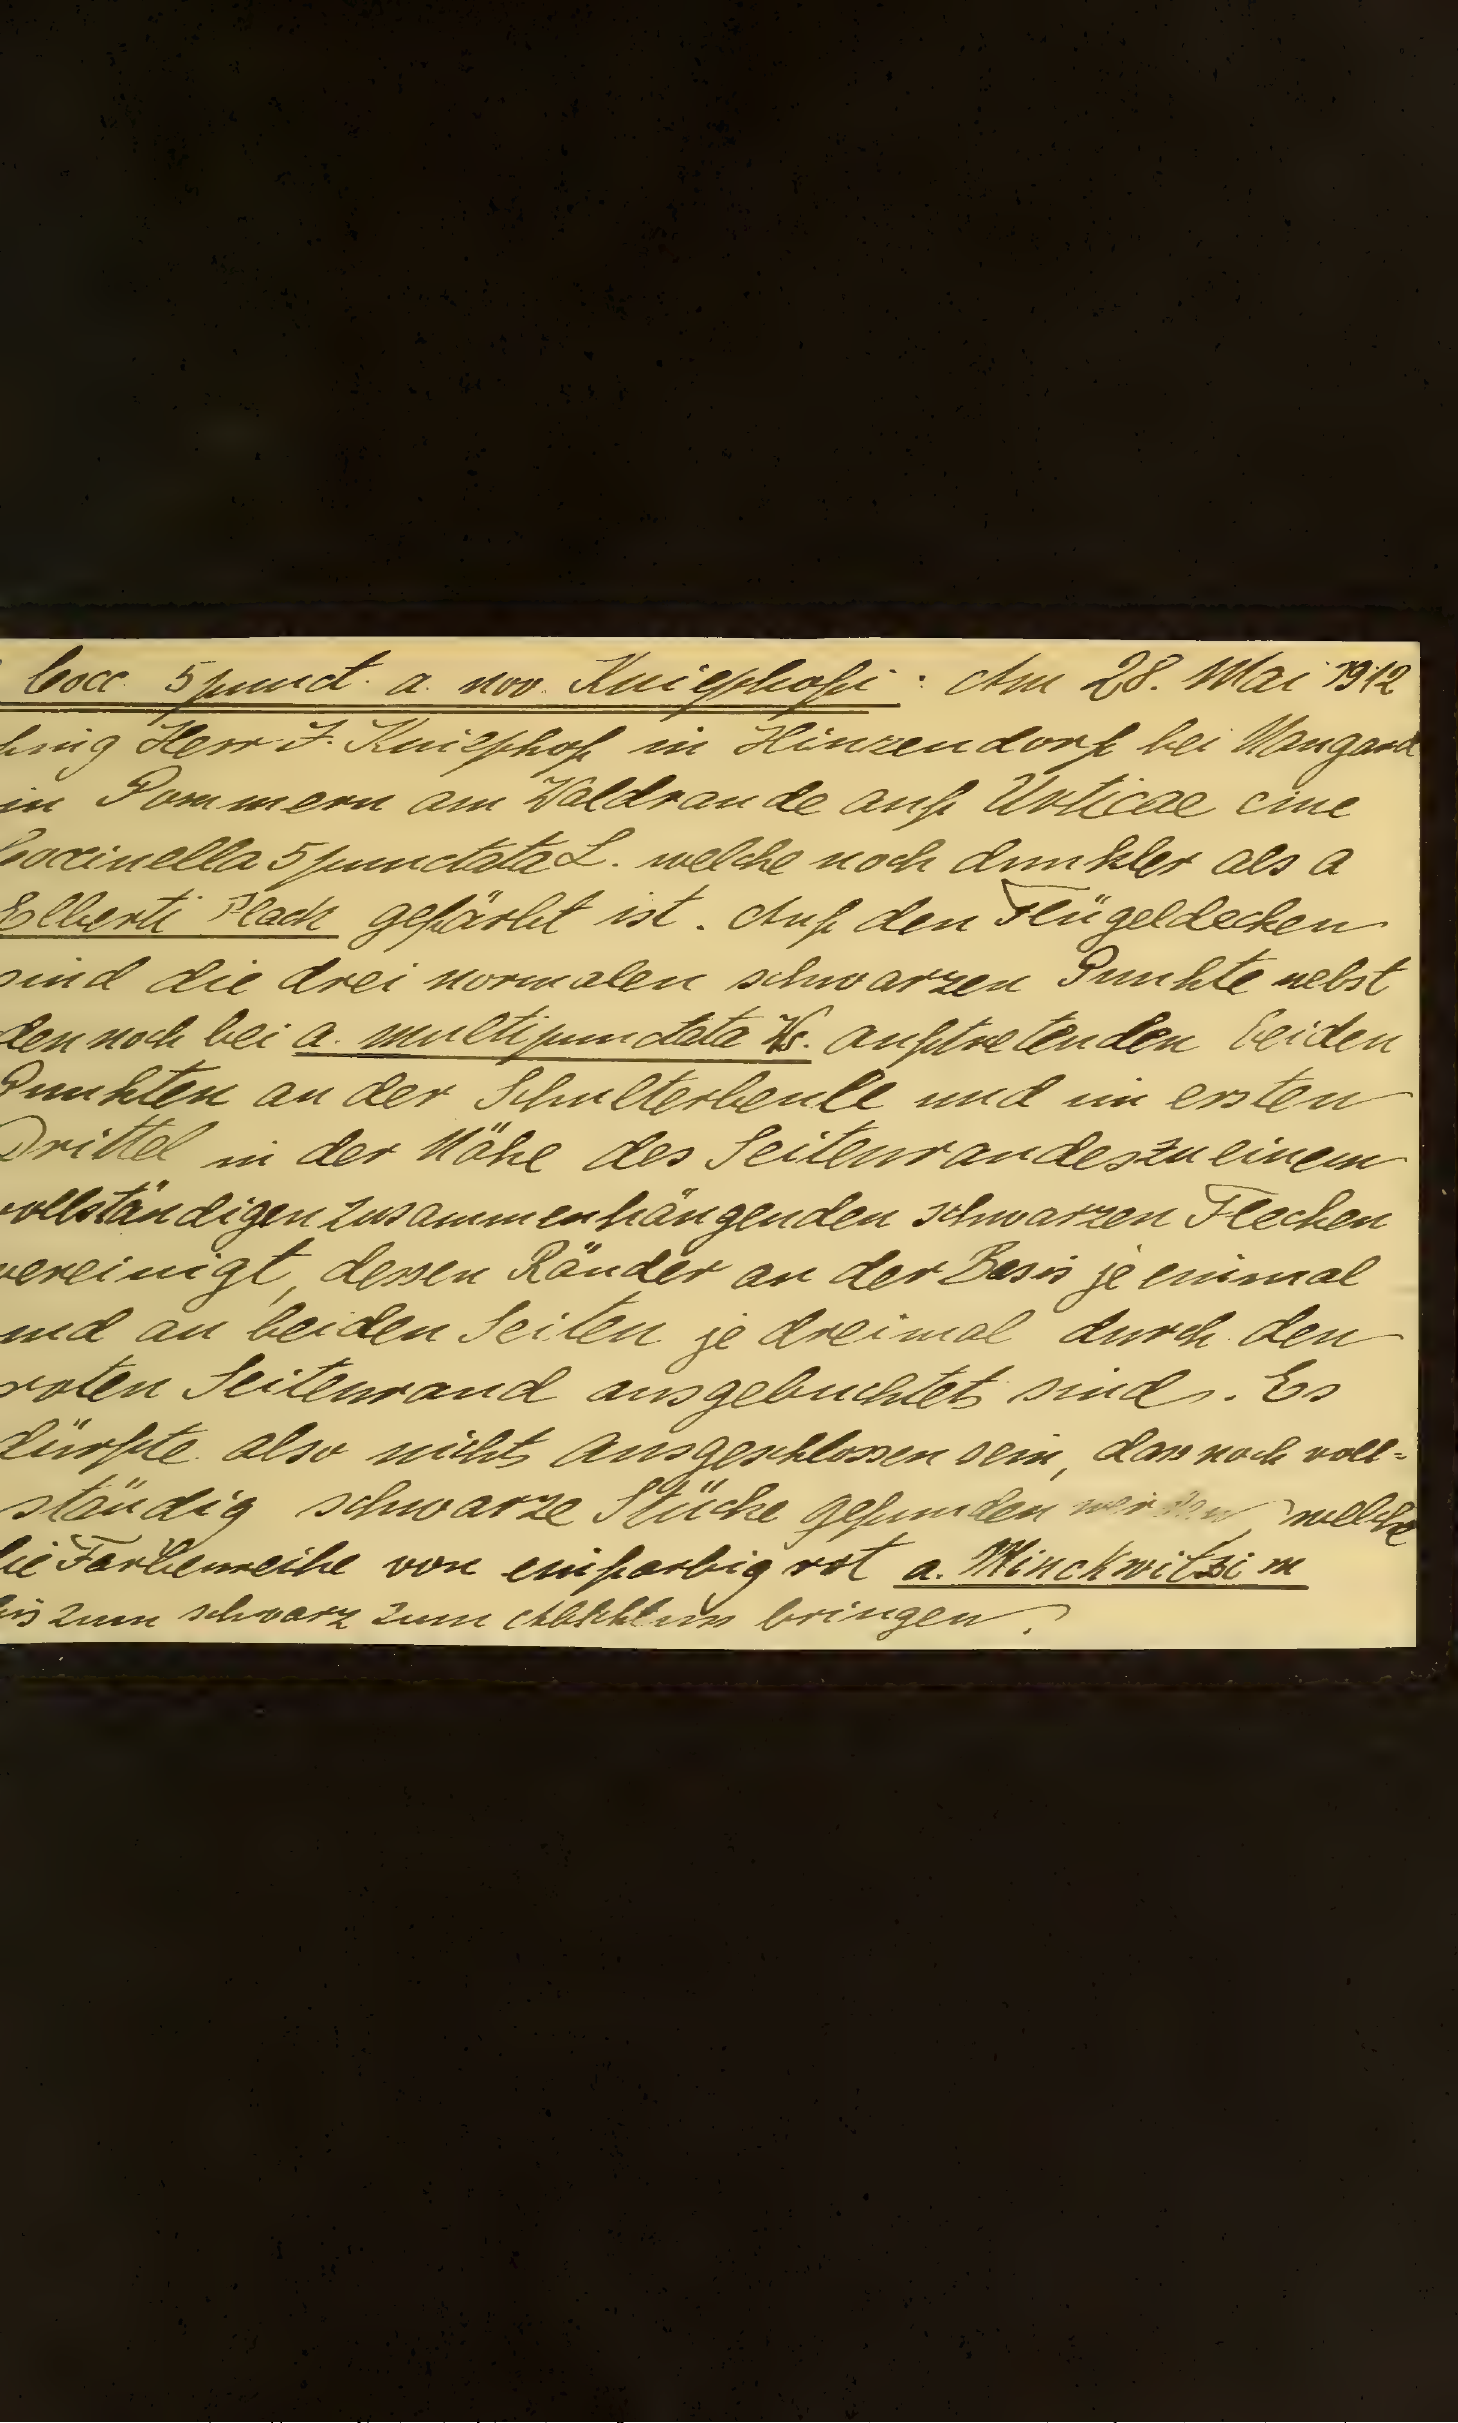 Cocc. 5punct. a. nov. Kniephofi: Am 28. Mai 1912
fing Herr J. Kniephof in Hinzendorf bei Naugard
in Pommern am Waldrande auf Urticae eine
Coccinella 5punctata L. welche noch dunkler als a
Elberti Flach gefärbt ist. Auf den Flügeldecken
sind die drei normalen schwarzen Punkte nebst
den noch bei a. multipunctata Ws. auftretenden beiden
Punkten an der Schulterbeule und im ersten
Drittel in der Nähe des Seitenrandes zu einem
vollständigen zusammenhängenden schwarzen Flecken
vereinigt, dessen Ränder an der Basis je einmal
und an beiden Seiten je dreimal durch den
roten Seitenrand ausgebuchtet sind. Es
dürfte also nicht ausgeschlossen sein, dass noch voll-
ständig schwarze Stücke gefunden werden, welche
die Farbenreihe von einfarbig rot a. Minckwitzi m
bis zum schwarz zum Abschluss bringen.